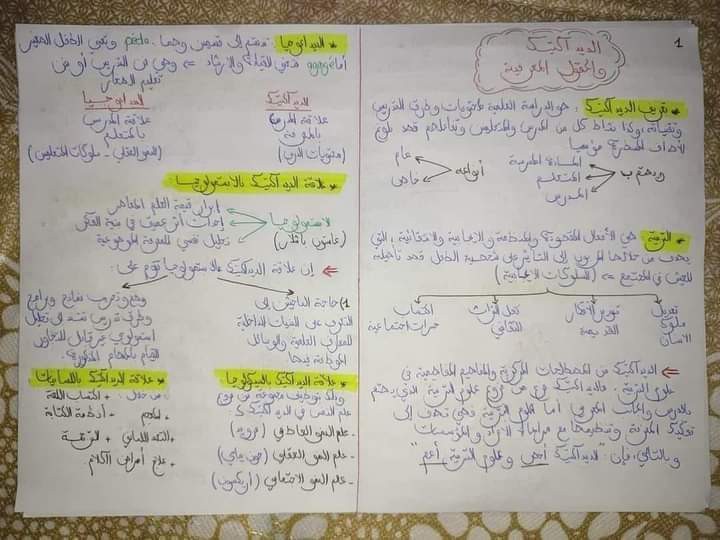 1
الديداكتيك
والحقول المعرفية
* تعريف الديداكتيك: هو الدراسة العلمية لمحتويات وطرق التدريس
وتقنياته وكذا نشاط كل من المدرس والمتعلمين وتفاعلهم قصد بلوغ
الأهداف المسطرة مؤسسيا
ويهتم ب
المادة المعرفية
المتعلم
المدرس
أنواعه
عام
خاص
* التربية: هي الأفعال المقصودة والمنظمة والإيجابية والانتقائية، التي
يهدف من خلالها المربون إلى التأثير على شخصية الطفل قصد تأهيله
للعيش في المجتمع = (السلوكات الإيجابية)
تعديل سلوك الانسان
تمرير الأفكار القديمة
نقل التراث الثقافي
اكتساب خبرات اجتماعية
الديداكتيك من المصطلحات المركزية والمفاهيم المفتاحية في
علوم التربية. فالديداكتيك فرع من فروع علوم التربية الذي يهتم
بالدرس والجانب المعرفي أما علوم التربية فهي تهدف إلى
المعرفة وتنظيمها مع الأفراد والمؤسسات
وبالتالي، فإن: "الديداكتيك أخص وعلوم التربية أعم"
* البيداغوجيا: تنقسم إلى قسمين وهما péda وتعني الطفل الصغير
أما gogie فتعني القيادة والإرشاد = وهي فن التدريب أو فن
تعليم الصغار
الديداكتيك
علاقة المدرس
بالمعرفة
(محتويات الدرس)
البيداغوجيا
علاقة المدرس
بالمتعلم
(النمو العقلي - سلوكات المتعلمين)
* علاقة الديداكتيك بالابستمولوجيا
الابستمولوجيا
(غاستون باشلار)
إبراز قيمة العلم المعاصر
إحداث أثر عميق في بنية الفكر
تحليل نفسي للمعرفة الموضوعية
إن علاقة الديداكتيك بالابستمولوجيا تقوم على:
1) حاجة الباحثين إلى
التعرف على البنيات الداخلية
للمعارف العلمية والوسائل
الموظفة فيها
وضع وتجريب نماذج وبرامج
وطرق تدريس تستند إلى تحليل
ابستمولوجي غير قابل للتجاوز
للقيام بالمهام المذكورة.
* علاقة الديداكتيك بالسيكولوجيا
ولقد توظيف مجموعة من فروع
علم النفس في الديداكتيك ك:
- علم النمو العاطفي (فرويد)
- علم النمو العقلي (جون بياجي)
- علم النمو الاجتماعي (اريكسون)
* علاقة الديداكتيك باللسانيات
من خلال: * اكتساب اللغة
+ المعجم + أنظمة الكتابة
+ النقد اللساني + الترجمة
+ علاج أمراض الكلام